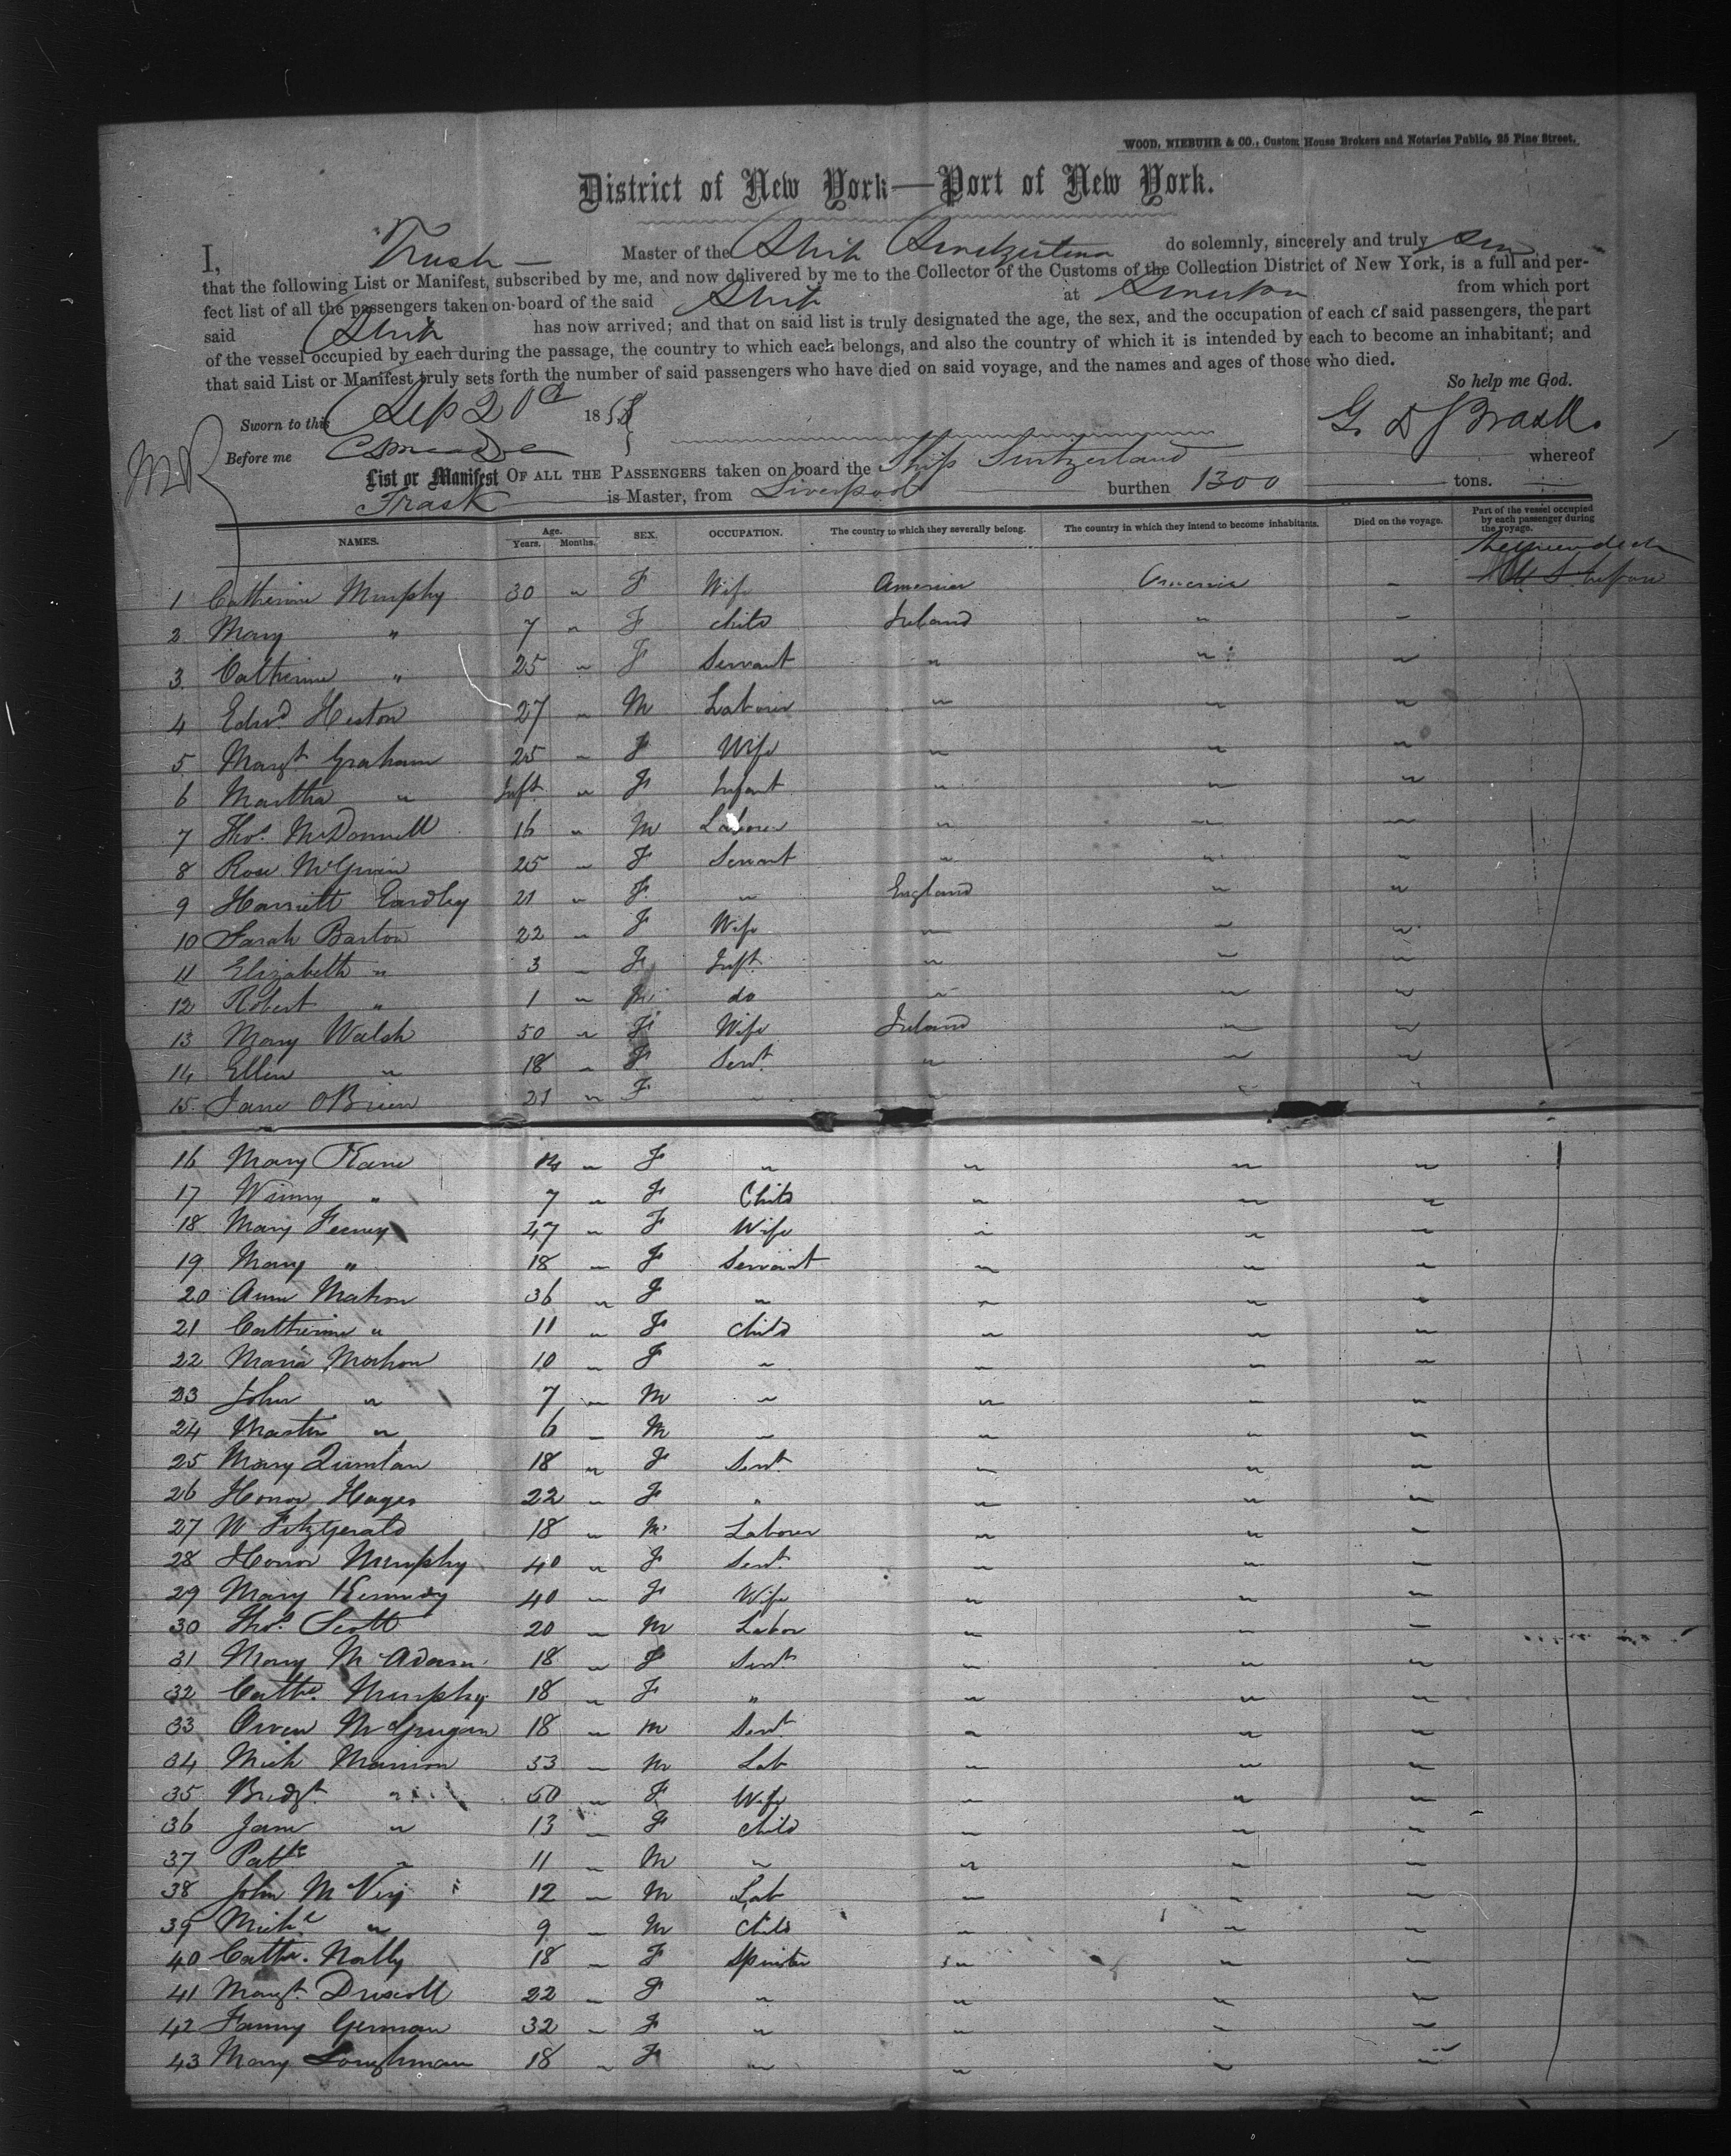 WOOD, NIEBUHR & CO., Custom House Brokers and Notaries Public, 25 Pine Street.
District of New York—Port of New York.
I, Trask — Master of the Ship Switzerland do solemnly, sincerely and truly
that the following List or Manifest, subscribed by me, and now delivered by me to the Collector of the Customs of the Collection District of New York, is a full and per-
fect list of all the passengers taken on board of the said Ship at Liverpool from which port
said Ship has now arrived; and that on said list is truly designated the age, the sex, and the occupation of each of said passengers, the part
of the vessel occupied by each during the passage, the country to which each belongs, and also the country of which it is intended by each to become an inhabitant; and
that said List or Manifest truly sets forth the number of said passengers who have died on said voyage, and the names and ages of those who died.
So help me God.
Sworn to this Sep 20 1858
G. D. S. Trask.
Before me
List or Manifest OF ALL THE PASSENGERS taken on board the Ship Switzerland whereof
Trask is Master, from Liverpool burthen 1300 tons.
NAMES. Age. Years. Months. SEX. OCCUPATION. The country to which they severally belong. The country in which they intend to become inhabitants. Died on the voyage. Part of the vessel occupied by each passenger during the voyage.
1 Catherine Murphy 30 " F Wife America America -
2 Mary " 7 " F child Ireland " -
3. Catherine " 25 " F Servant " " "
4 Edwd Heston 27 " M Labourer " " "
5. Margt Graham 25 " F Wife " " "
6 Martha " Inft " F Infant " " "
7 Thos McDonnell 16 " M Labourer " " "
8 Rose McGuin 25 " F Servant " " "
9 Harriett Eardley 21 " F " England " "
10 Sarah Barton 22 " F Wife " " "
11 Elizabeth " 3 " F Inft " " "
12 Robert " 1 " M do " " "
13 Mary Walsh 50 " F Wife Ireland " "
14 Ellen " 18 " F Servt " " "
15 Jane OBrien 21 " F " " " "
16 Mary Kane " F " " " "
17 Winny " 7 " F Child " " "
18 Mary Feeney 47 " F Wife " " "
19 Mary " 18 " F Servant " " "
20 Ann Mahon 36 " F " " " "
21 Catherine " 11 " F child " " "
22 Maria Mahon 10 " F " " " "
23 John " 7 " M " " " "
24 Martin " 6 " M " " " "
25 Mary Quinlan 18 " F Servt " " "
26 Honor Hayes 22 " F " " " "
27 W Fitzgerald 18 " M Labourer " " "
28 Honor Murphy 40 " F Servt " " "
29 Mary Kennedy 40 " F Wife " " "
30 Thos Scott 20 " M Labor " " "
31 Mary McAdam 18 " F Servt " " "
32 Cathe Murphy 18 " F " " " "
33 Owen McGuigan 18 " M Servt " " "
34 Mich Mannion 53 " M Lab " " "
35 Bridgt " 50 " F Wife " " "
36 Jane " 13 " F child " " "
37 Patk " 11 " M " " " "
38 John McVey 12 " M Lab " " "
39 Michl " 9 " M child " " "
40 Cathe. Nally 18 " F Spinster " " "
41 Margt Driscoll 22 " F " " " "
42 Fanny German 32 " F " " " "
43 Mary Loughman 18 " F " " " "